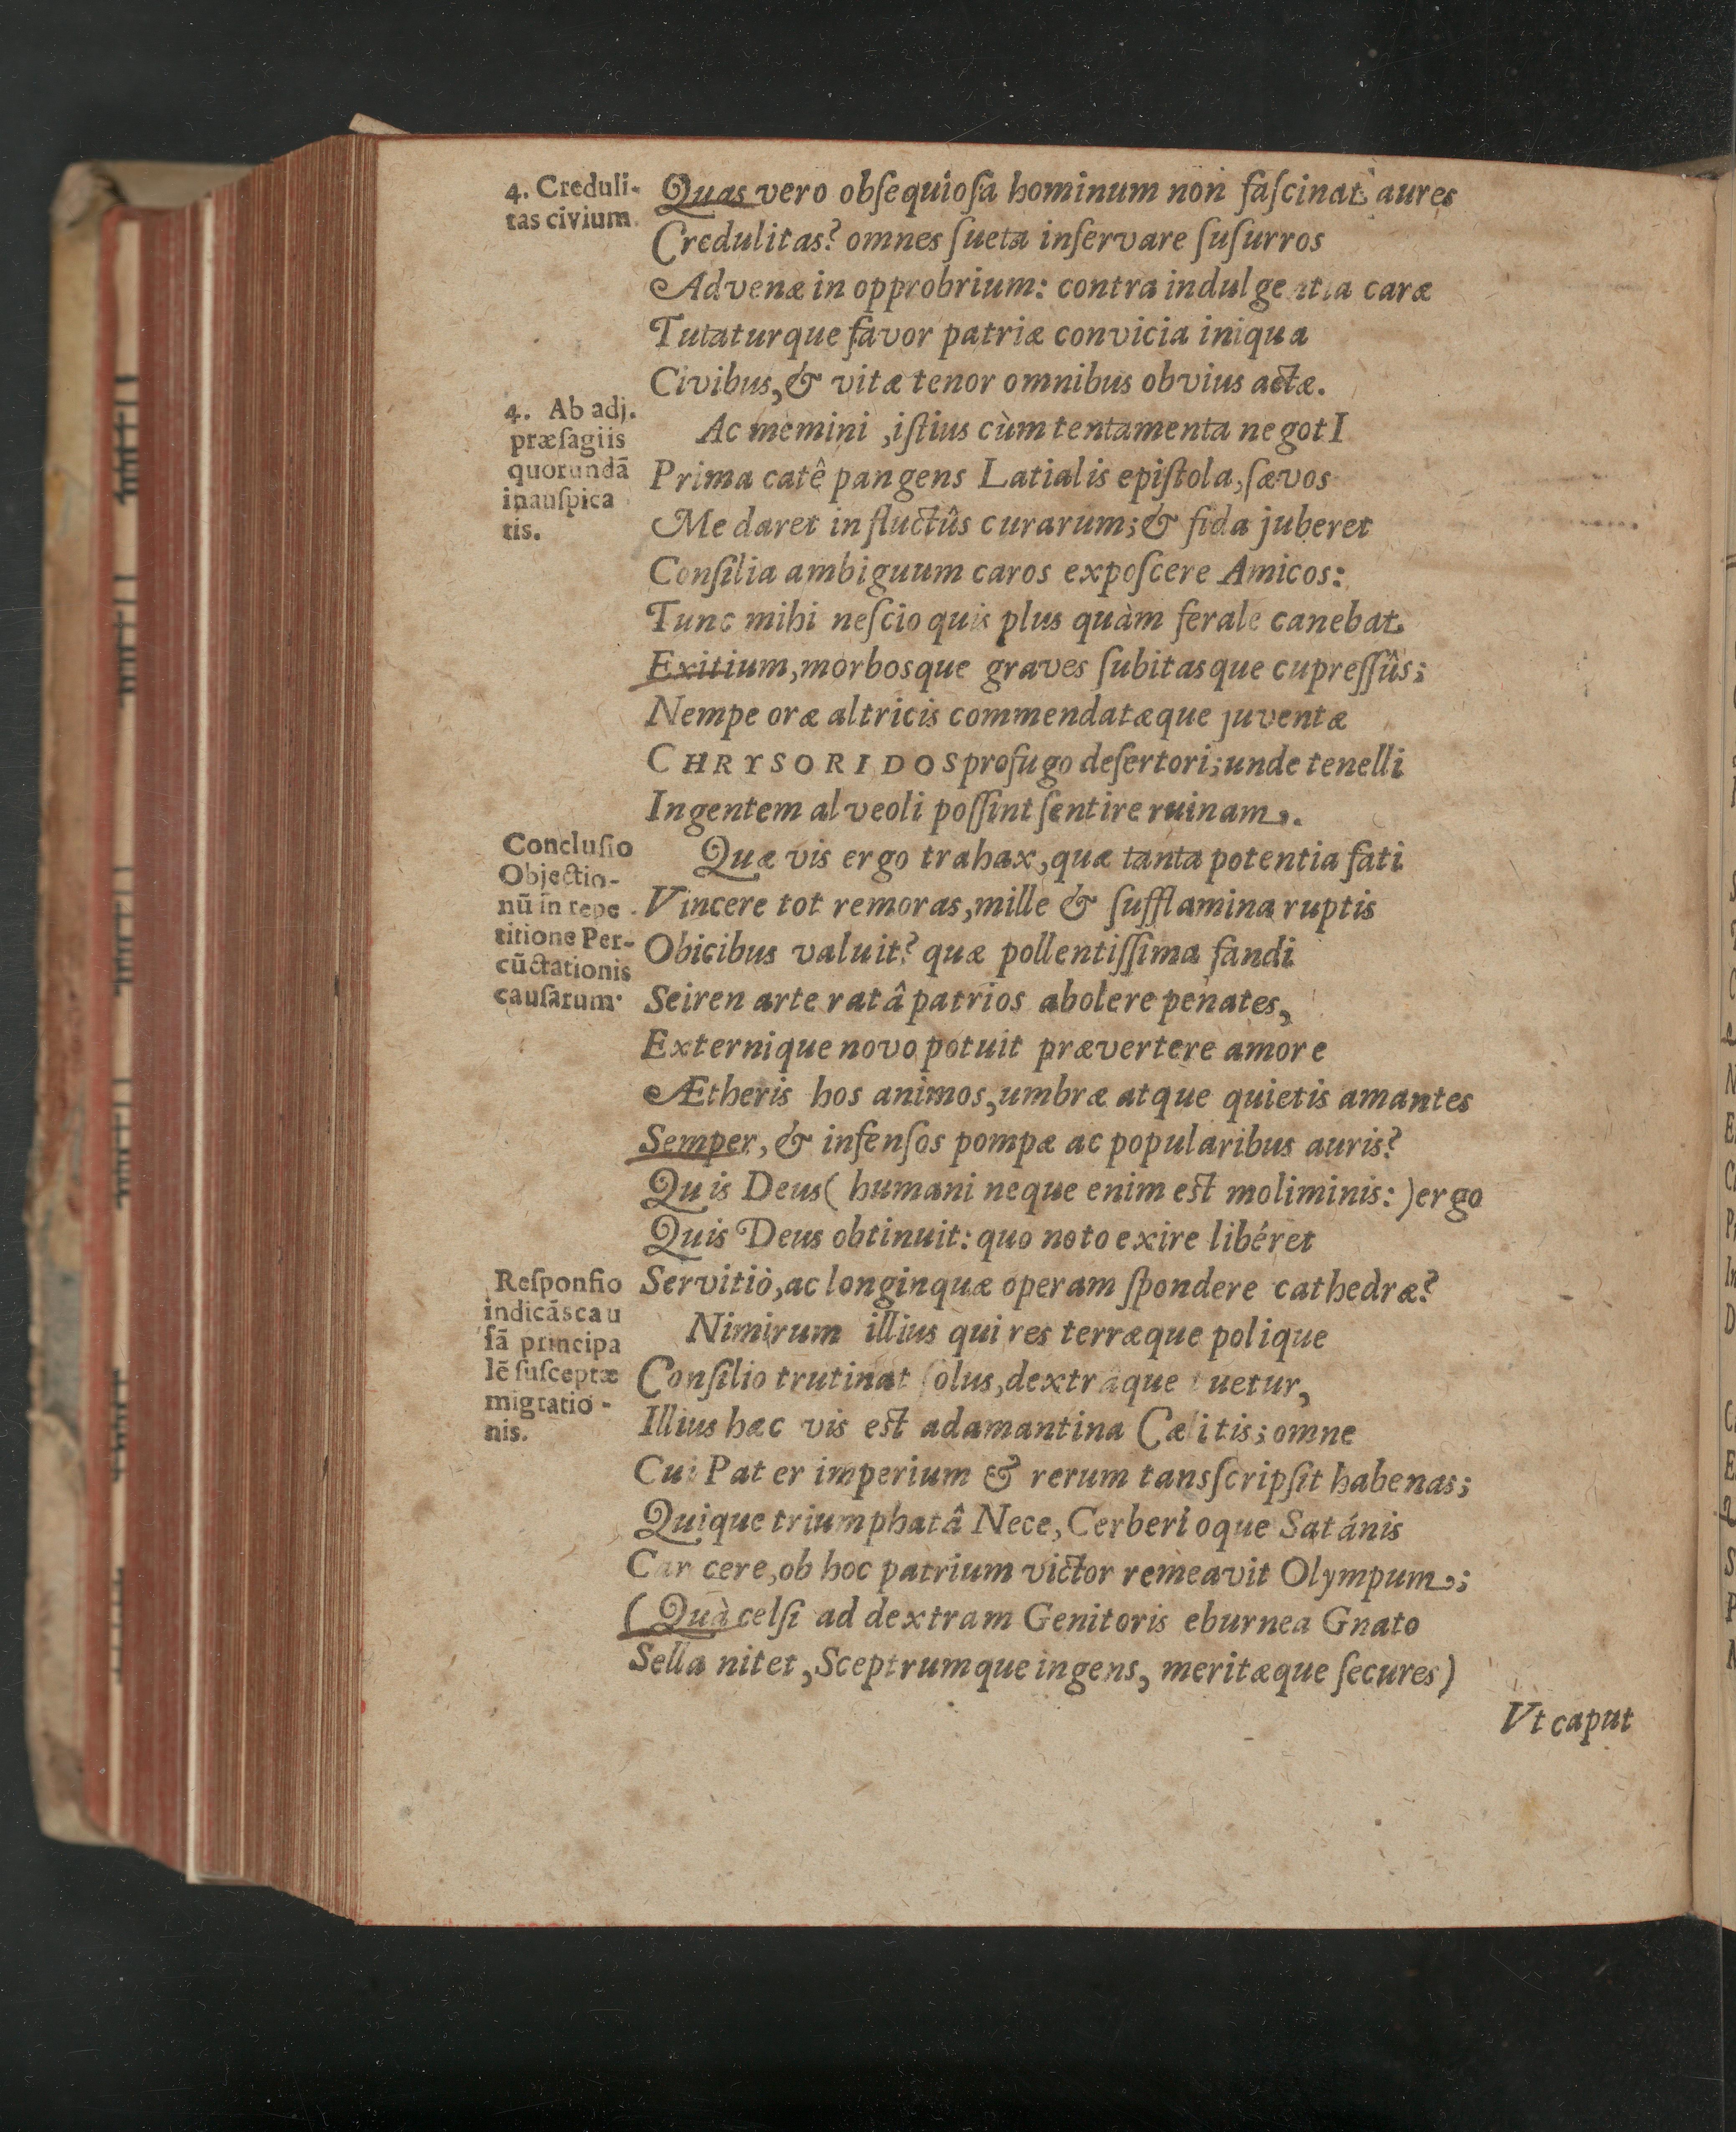 4. Creduli-
tas civium.
Quas vero obſequioſa hominum non faſcinat aures
Credulitas? omnes ſueta inſervare ſuſurros
Advenæ in opprobrium: contra indulgentia caræ
Tutaturque favor patriæ convicia iniqua
Civibus, & vitæ tenor omnibus obvius actæ.
4. Ab adj.
præſagiis
quorundā
inauſpica
tis.
Ac memini, iſtius cùm tentamenta negotI
Prima catê pangens Latialis epiſtola, ſævos
Me daret in fluctûs curarum; & fida juberet
Conſilia ambiguum caros expoſcere Amicos:
Tunc mihi neſcio quis plus quàm ferale canebat
Exitium, morbosque graves ſubitasque cupreſſûs;
Nempe oræ altricis commendatæque juventæ
CHRYSORIDOS profugo deſertori; unde tenelli
Ingentem alveoli poſſint ſentire ruinam.
Concluſio
Objectio-
nū in repe
titione Per-
cūctationis
cauſarum.
Quæ vis ergo trahax, quæ tanta potentia fati
Vincere tot remoras, mille & ſufflamina ruptis
Obicibus valuit? quæ pollentiſſima fandi
Seiren arte ratâ patrios abolere penates,
Externique novo potuit prævertere amore
Ætheris hos animos, umbræ atque quietis amantes
Semper, & infenſos pompæ ac popularibus auris?
Quis Deus ( humani neque enim est moliminis: ) ergo
Quis Deus obtinuit: quo noto exire libéret
Servitiò, ac longinquæ operam ſpondere cathedræ?
Reſponſio
indicās cau
ſā principa
lē ſuſceptæ
migratio-
nis.
Nimirum illius qui res terræque polique
Conſilio trutinat ſolus, dextrâque tuetur,
Illius hæc vis est adamantina Cælitis; omne
Cui Pater imperium & rerum tansſcripſit habenas;
Quique triumphatâ Nece, Cerberioque Satánis
Carcere, ob hoc patrium victor remeavit Olympum;
( Quà celſi ad dextram Genitoris eburnea Gnato
Sella nitet, Sceptrumque ingens, meritæque ſecures)
Vt caput